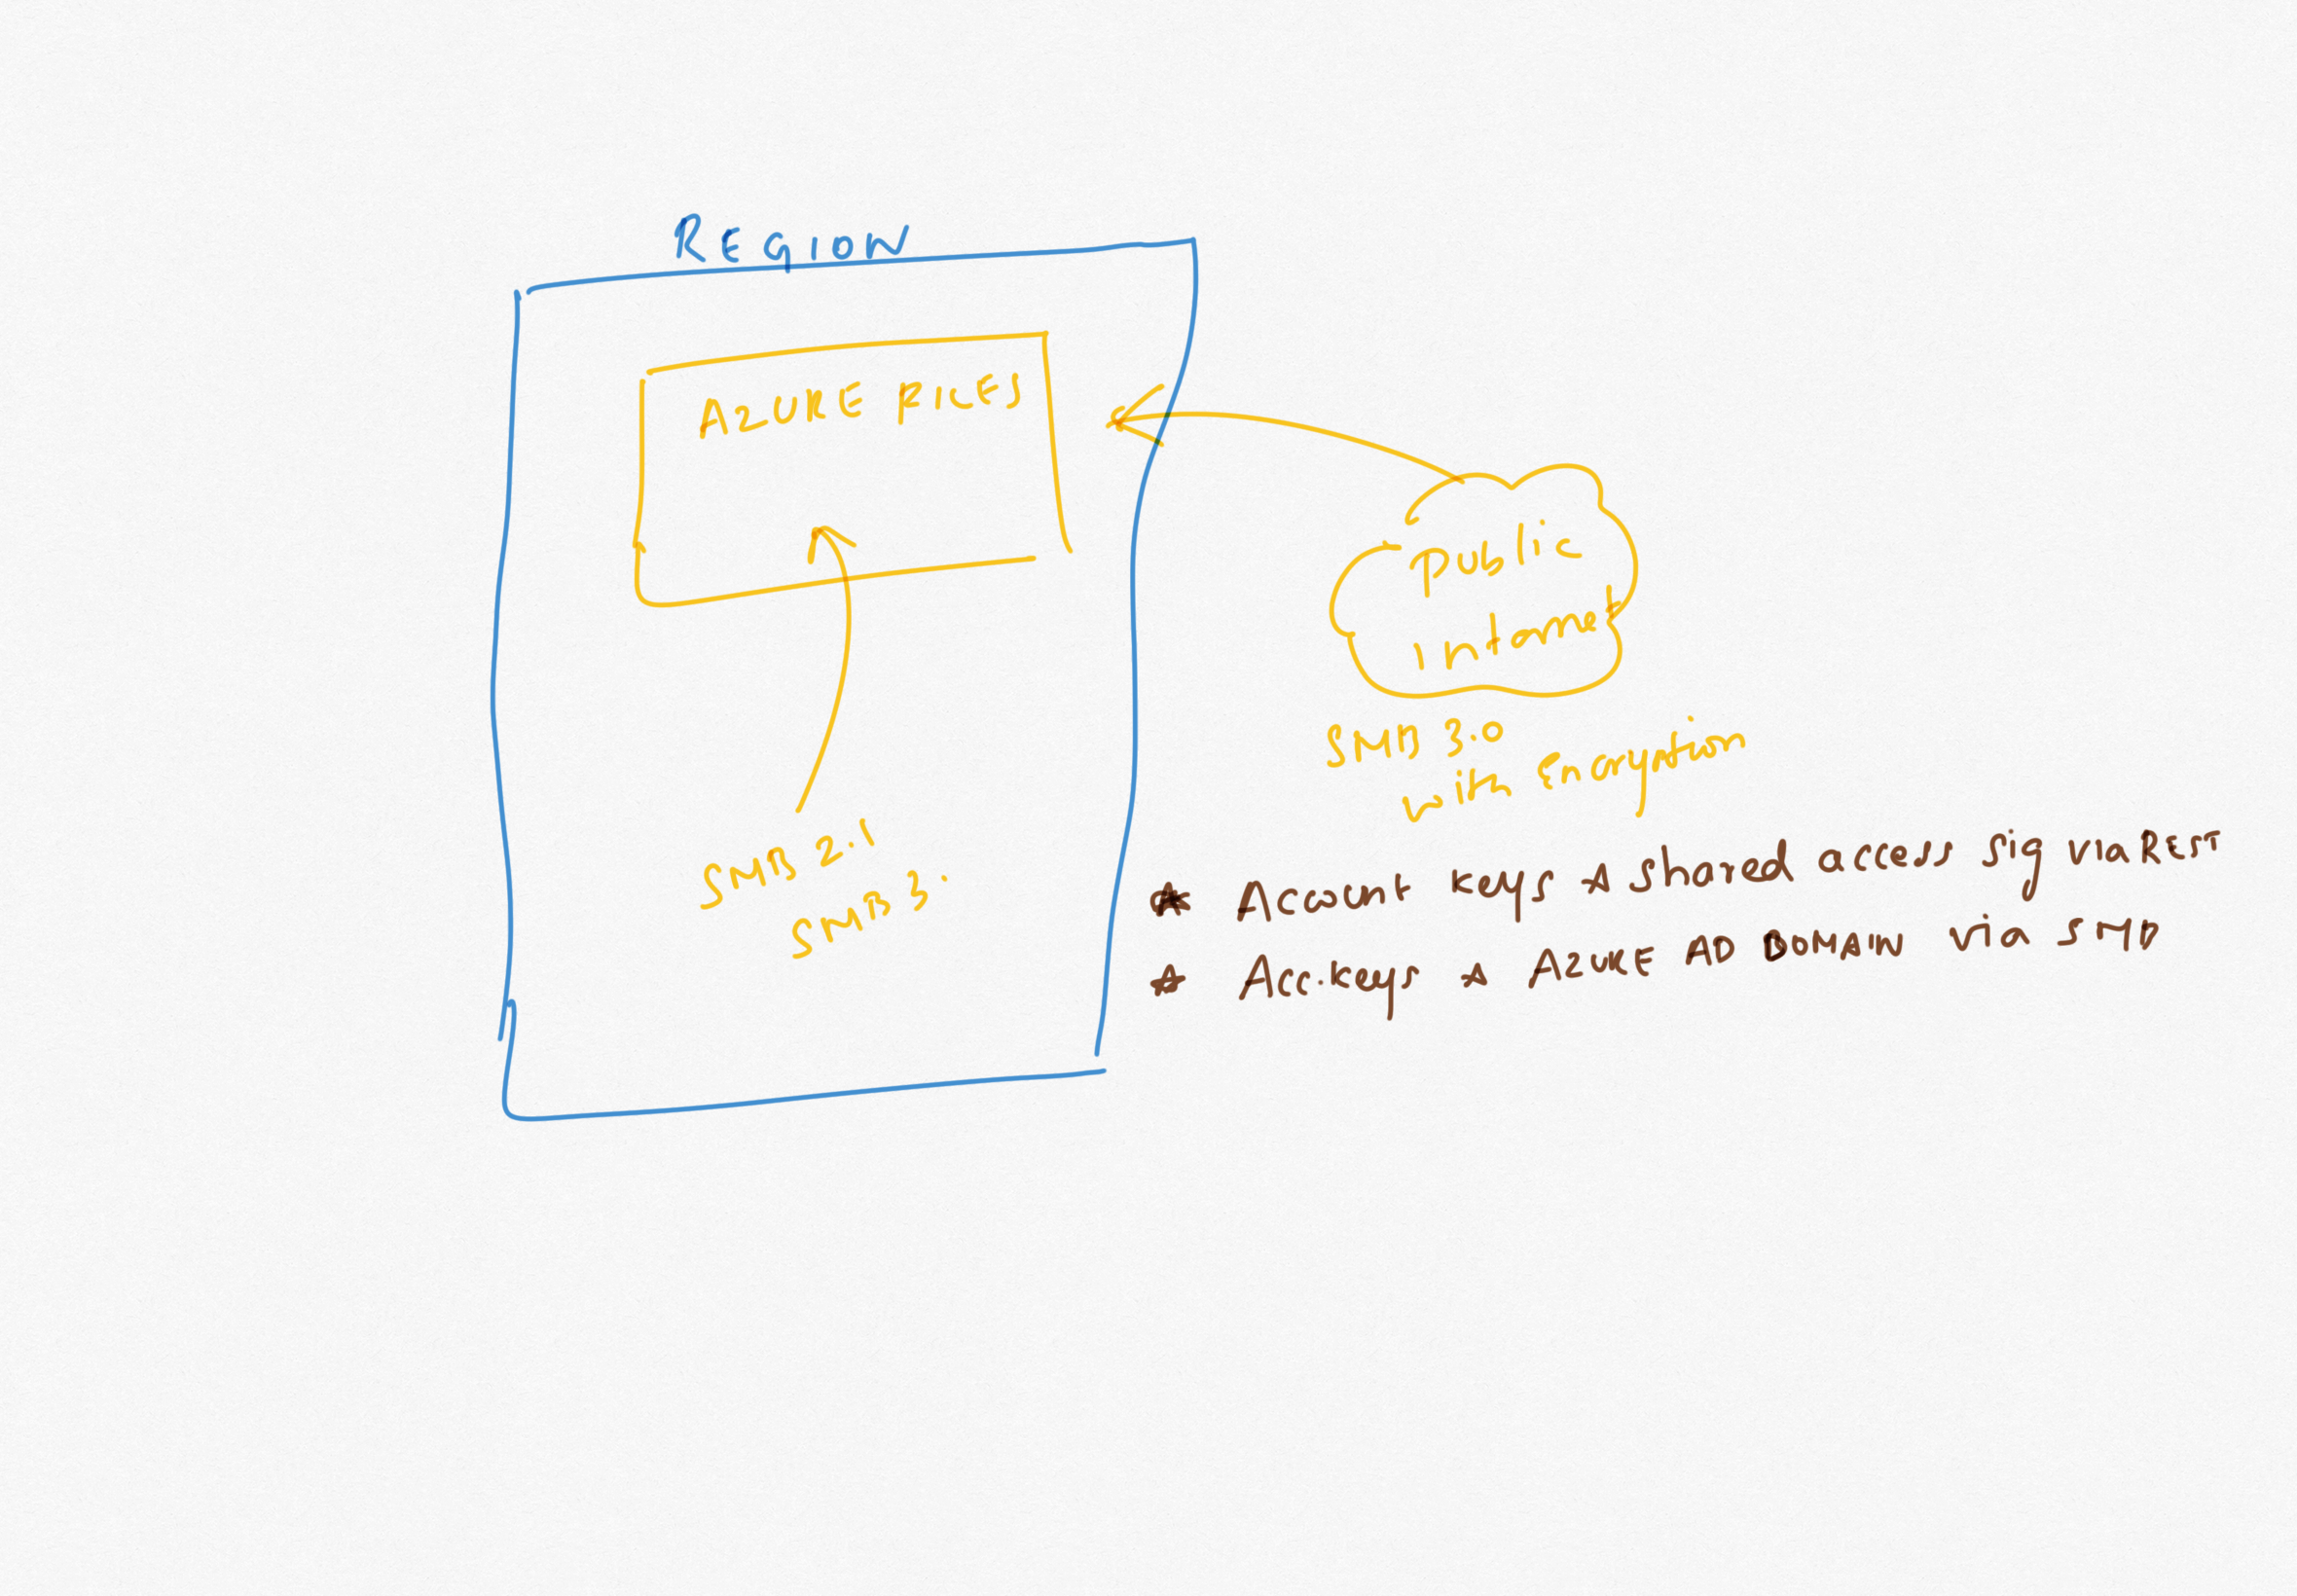 REGION
AZURE FILES
Public
Internet
SMB 3.0
with Encryption
SMB 2.1
SMB 3.
* Account keys & shared access sig via REST
* Acc.keys & AZURE AD DOMAIN via SMB